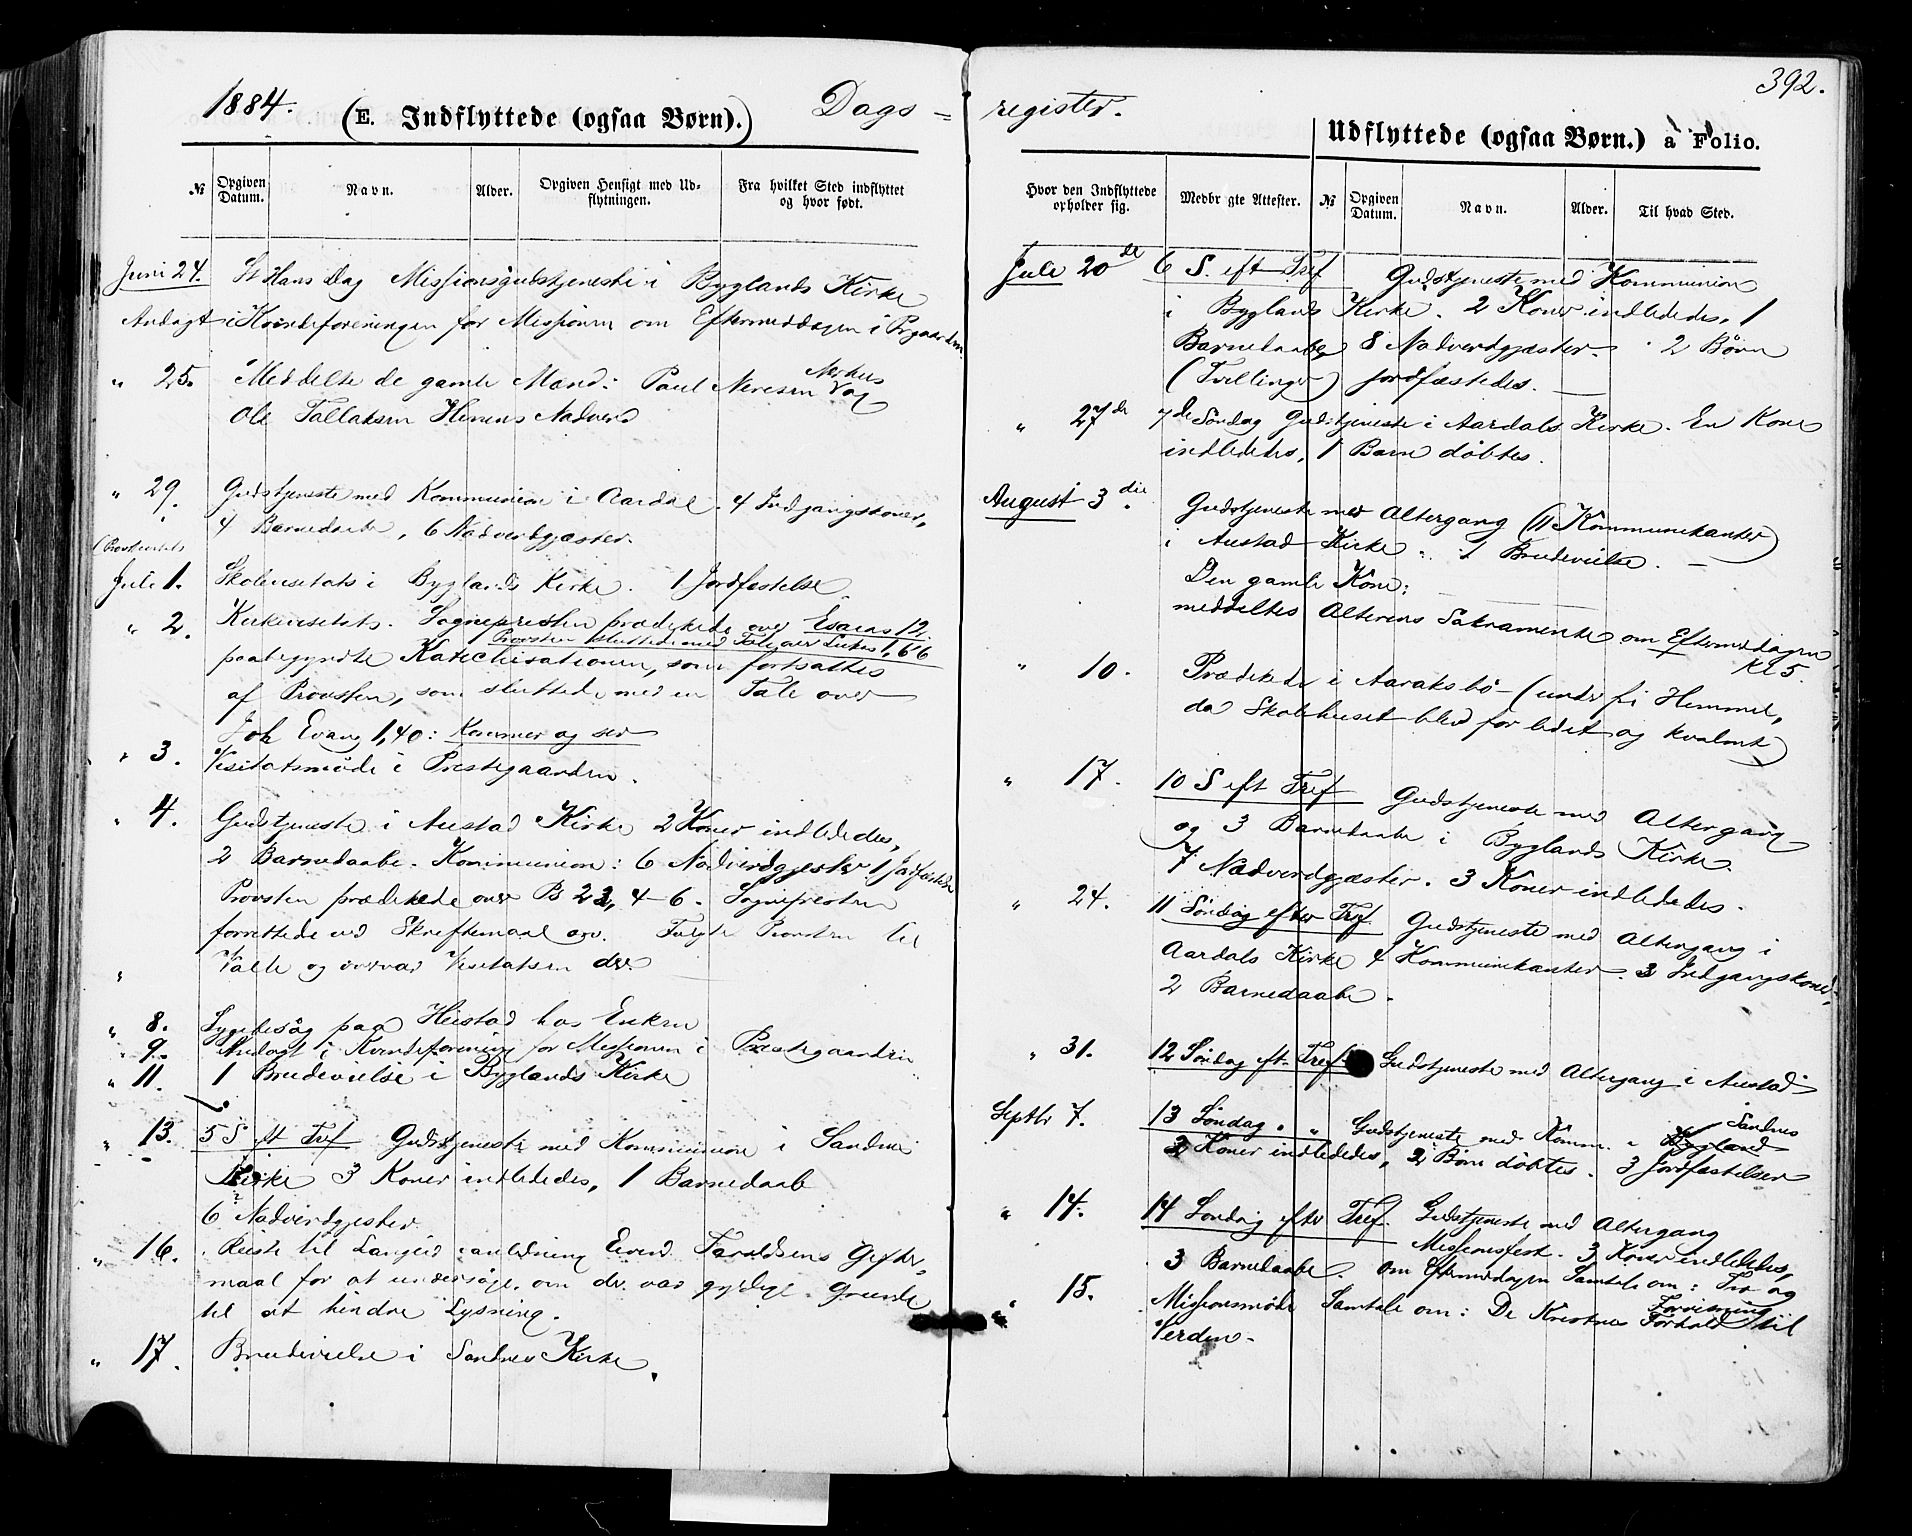 1884. (E. Indflyttede (ogsaa Børn).) Dags-
№
Opgiven Datum.
Navn.
Alder.
Opgiven Hensigt med Ud-
flytningen.
Fra hvilket Sted indflyttet
og hvor født.
Juni 24. St Hans Dag Missionsgudstjeneste i Byglands Kirke
Andagt i Kvindeforeningen for Missionen om Eftermiddagen i Prgaarden
" 25. Meddelte de gamle Mænd: Paul Neresen
Ole Tallaksen Nadverd
" 29. Gudstjeneste med Kommunion i Aardal. 4 Indgangskoner,
4 Barnedaabe, 6 Nadverdgjæster.
Juli 1. Skolevisitats i Byglands Kirke. 1 Jordfæstelse.
" 2. Kirkevisitats. Sognepresten prædikede over Esaias 12,
Provsten sluttede med Tale over Lukas 1,66
paabegyndte Katechisationen, som fortsattes
af Provsten, som sluttede med en Tale over
Joh Evang 1,40: Kommer og ser
" 3. Visitatsmöde i Prestegaarden.
" 4. Gudstjeneste i Austad Kirke 2 Koner indlededes,
2 Barnedaabe. Kommunion: 6 Nadverdgjester 1 Jordfæstede
Provsten prædikede over 4-6. Sognepresten
forrettede ved Skriftemaal osv. Fulgte Provsten til
" Valle og overvar Visitatsen der.
" 8. Sygebesög paa Heistad hos Enken
" 9. Andagt i Kvindeforening for Missionen i Præstegaarden
" 11. 1 Brudevielse i Byglands Kirke
" 13. 5 S. eft Tref Gudstjeneste med Kommunion i Sandnes
Kirke 3 Koner indlededes, 1 Barnedaab
6 Nadverdgjester
" 16. Reiste til Langeid i anledning Eivind Taraldsens Gifter-
maal for at undersöge, om der var gyldige Grunde
til at hindre Lysning.
" 17. Brudevielse i Sandnes Kirke.
392.
register. Udflyttede (ogsaa Børn.) a Folio.
Hvor den Indflyttede
opholder sig.
Medbr gte Attester.
№
Opgiven Datum.
Navn.
Alder.
Til hvad Sted.
Juli 20de 6 S. eft Tref Gudstjeneste med Kommunion
i Byglands Kirke. 2 Koner indlededes, 1
Barnedaab, 8 Nadverdgjæster. 2 Börn
(Tvillinger) jordfæstedes.
" 27de 7de Söndag Gudstjeneste i Aardals Kirke. En Kone
indlededes, 1 Barn döbtes.
August 3die. Gudstjeneste med Altergang (11 Kommunikanter)
i Austad Kirke. 1 Brudevielse.
Den gamle Kone:
meddeltes Alterens Sakramente om Eftermidagen
Kl 5.
" 10. Prædikede i Aaraksbö (under fri Himmel,
da Skolehuset blev for lidet og kvalmt)
" 17. 10 S eft Tref Gudstjeneste med Altergang
og 3 Barnedaabe i Byglands Kirke
7 Nadverdgjæster. 3 Koner indlededes.
" 24. 11 Söndag efter Tref Gudstjeneste med Altergang i
Aardals Kirke 4 Kommunikanter. 3 Indgangskoner,
2 Barnedaabe.
" 31. 12 Söndag eft. Tref Gudstjeneste med Altergang i Austad
Septbr 7. 13 Söndag " " Gudstjeneste med Komm. i Bygland Sandnes
2 Koner indlededes, 2 Börn döbtes. 3 Jordfæstelser
" 14. 14 Söndag efter Tref. Gudstjeneste med Altergang
Missionsfest. 3 Koner indlededes,
3 Barnedaabe. Om Eftermidagen Samtale om: Tro og
Forvisning
" 15. Missionsmöde Samtale om: De Kristnes Forhold til
Verden-